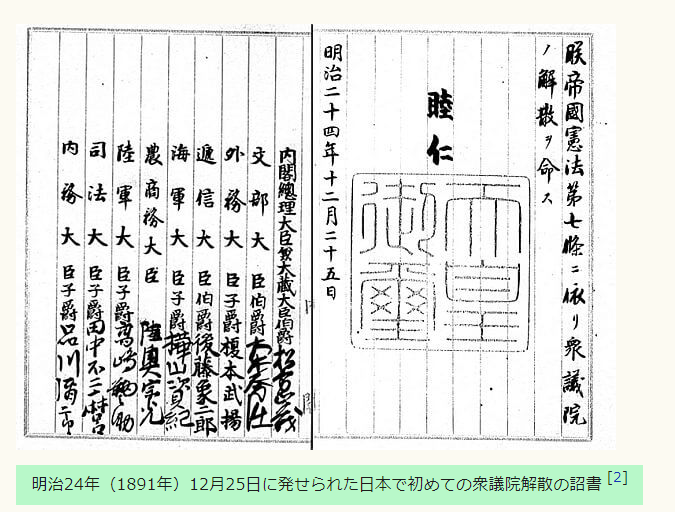 朕帝國憲法第七條ニ依リ衆議院
ノ解散ヲ命ス
睦仁
天皇御璽
明治二十四年十二月二十五日
内閣總理大臣兼大蔵大臣伯爵松方正義
文部大臣伯爵大木喬任
外務大臣子爵榎本武揚
遞信大臣伯爵後藤象二郎
海軍大臣子爵樺山資紀
農商務大臣陸奥宗光
陸軍大臣子爵高嶋鞆之助
司法大臣子爵田中不二麿
内務大臣子爵品川彌二郎
明治24年（1891年）12月25日に発せられた日本で初めての衆議院解散の詔書 [2]